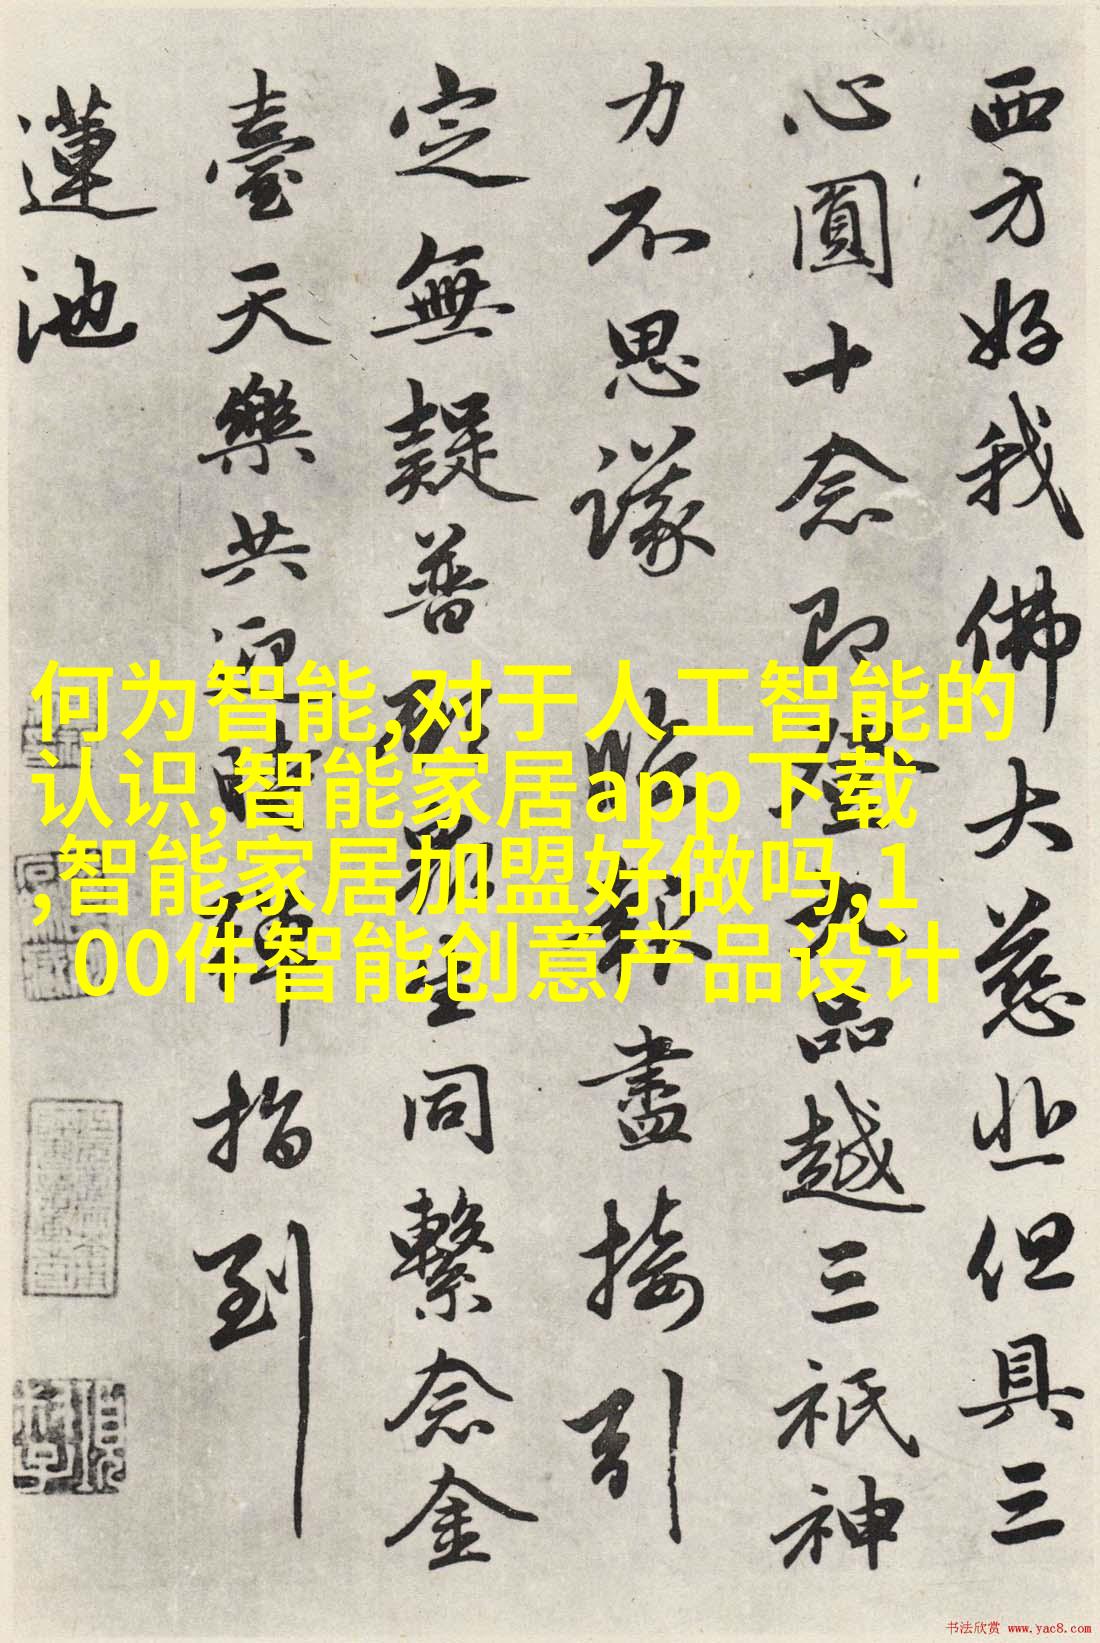 西方好我佛大慈悲但具三
心圓十念即登九品越三祇神
力不思議 臨報盡接引
定無疑普眾生同繫念金
臺天樂共迎時彈指到
蓮池
何为智能,对于人工智能的
认识,智能家居app下载
,智能家居加盟好做吗,1
00件智能创意产品设计
书法欣赏 www.yac8.com